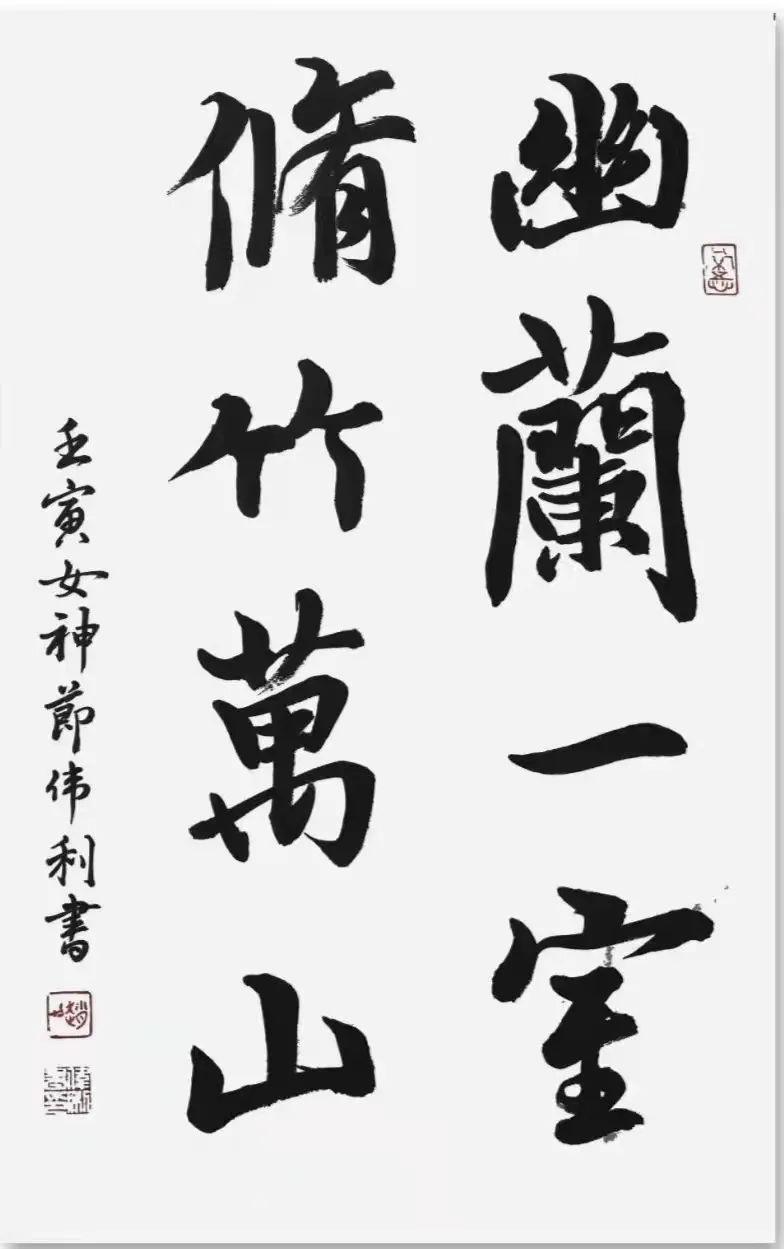 幽蘭一室
脩竹萬山
壬寅女神節伟利書